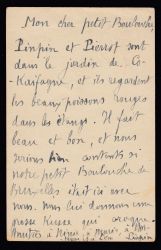 Mon cher petit Boubouche,
Pinpin et Pierrot sont
dans le jardin de Co-
Kaifagne, et ils regardent
les beaux poissons rouges
dans les étangs. Il fait
beau et bon, et nous
serions bien contents si
notre petit Boubouche de
Bruxelles était ici avec
nous. Nous lui donnons une
grosse kusse qui croque